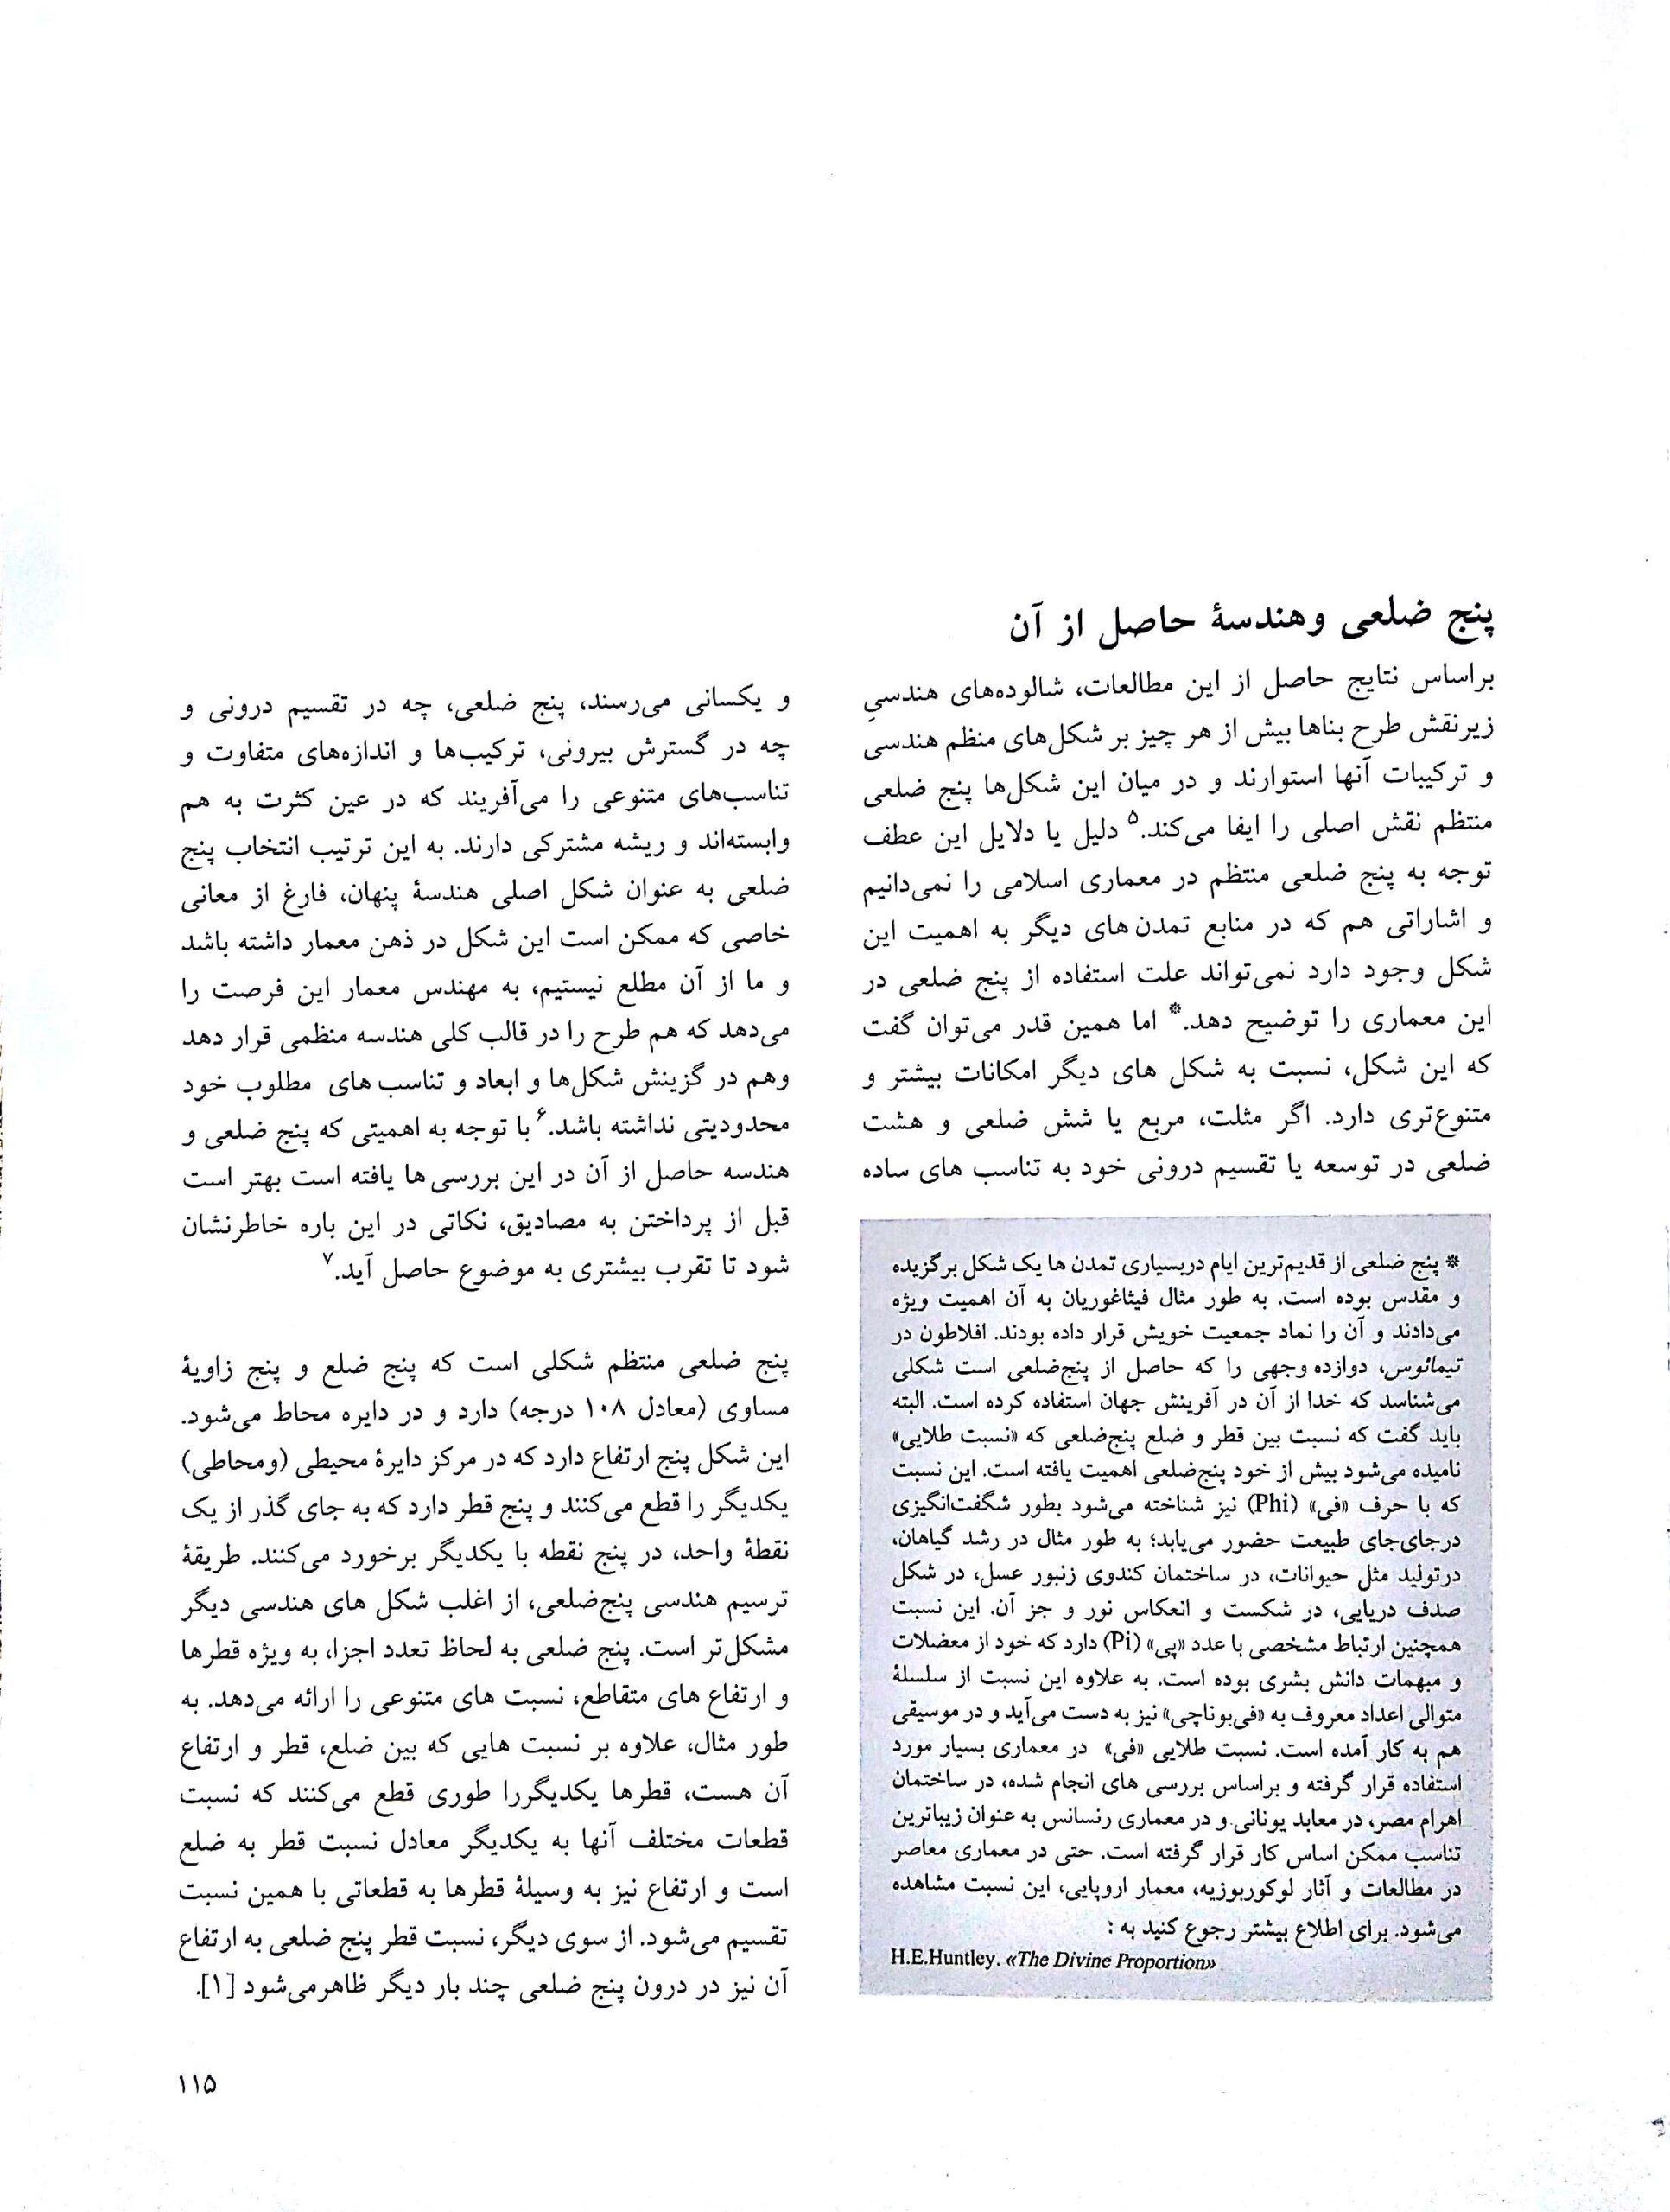 پنج ضلعی وهندسهٔ حاصل از آن
براساس نتایج حاصل از این مطالعات، شالوده‌های هندسیِ
زیرنقش طرح بناها بیش از هر چیز بر شکل‌های منظم هندسی
و ترکیبات آنها استوارند و در میان این شکل‌ها پنج ضلعی
منتظم نقش اصلی را ایفا می‌کند.۵ دلیل یا دلایل این عطف
توجه به پنج ضلعی منتظم در معماری اسلامی را نمی‌دانیم
و اشاراتی هم که در منابع تمدن های دیگر به اهمیت این
شکل وجود دارد نمی‌تواند علت استفاده از پنج ضلعی در
این معماری را توضیح دهد.* اما همین قدر می‌توان گفت
که این شکل، نسبت به شکل های دیگر امکانات بیشتر و
متنوع‌تری دارد. اگر مثلت، مربع یا شش ضلعی و هشت
ضلعی در توسعه یا تقسیم درونی خود به تناسب های ساده
* پنج ضلعی از قدیم‌ترین ایام دربسیاری تمدن ها یک شکل برگزیده
و مقدس بوده است. به طور مثال فیثاغوریان به آن اهمیت ویژه
می‌دادند و آن را نماد جمعیت خویش قرار داده بودند. افلاطون در
تیمائوس، دوازده وجهی را که حاصل از پنج‌ضلعی است شکلی
می‌شناسد که خدا از آن در آفرینش جهان استفاده کرده است. البته
باید گفت که نسبت بین قطر و ضلع پنج‌ضلعی که «نسبت طلایی»
نامیده می‌شود بیش از خود پنج‌ضلعی اهمیت یافته است. این نسبت
که با حرف «فی» (Phi) نیز شناخته می‌شود بطور شگفت‌انگیزی
درجای‌جای طبیعت حضور می‌یابد؛ به طور مثال در رشد گیاهان،
درتولید مثل حیوانات، در ساختمان کندوی زنبور عسل، در شکل
صدف دریایی، در شکست و انعکاس نور و جز آن. این نسبت
همچنین ارتباط مشخصی با عدد «پی» (Pi) دارد که خود از معضلات
و مبهمات دانش بشری بوده است. به علاوه این نسبت از سلسلهٔ
متوالی اعداد معروف به «فی‌بوناچی» نیز به دست می‌آید و در موسیقی
هم به کار آمده است. نسبت طلایی «فی» در معماری بسیار مورد
استفاده قرار گرفته و براساس بررسی های انجام شده، در ساختمان
اهرام مصر، در معابد یونانی و در معماری رنسانس به عنوان زیباترین
تناسب ممکن اساس کار قرار گرفته است. حتی در معماری معاصر
در مطالعات و آثار لوکوربوزیه، معمار اروپایی، این نسبت مشاهده
می‌شود. برای اطلاع بیشتر رجوع کنید به :
H.E.Huntley. «The Divine Proportion»
و یکسانی می‌رسند، پنج ضلعی، چه در تقسیم درونی و
چه در گسترش بیرونی، ترکیب‌ها و اندازه‌های متفاوت و
تناسب‌های متنوعی را می‌آفریند که در عین کثرت به هم
وابسته‌اند و ریشه مشترکی دارند. به این ترتیب انتخاب پنج
ضلعی به عنوان شکل اصلی هندسهٔ پنهان، فارغ از معانی
خاصی که ممکن است این شکل در ذهن معمار داشته باشد
و ما از آن مطلع نیستیم، به مهندس معمار این فرصت را
می‌دهد که هم طرح را در قالب کلی هندسه منظمی قرار دهد
وهم در گزینش شکل‌ها و ابعاد و تناسب های مطلوب خود
محدودیتی نداشته باشد.۶ با توجه به اهمیتی که پنج ضلعی و
هندسه حاصل از آن در این بررسی ها یافته است بهتر است
قبل از پرداختن به مصادیق، نکاتی در این باره خاطرنشان
شود تا تقرب بیشتری به موضوع حاصل آید.۷
پنج ضلعی منتظم شکلی است که پنج ضلع و پنج زاویهٔ
مساوی (معادل ۱۰۸ درجه) دارد و در دایره محاط می‌شود.
این شکل پنج ارتفاع دارد که در مرکز دایرهٔ محیطی (ومحاطی)
یکدیگر را قطع می‌کنند و پنج قطر دارد که به جای گذر از یک
نقطهٔ واحد، در پنج نقطه با یکدیگر برخورد می‌کنند. طریقهٔ
ترسیم هندسی پنج‌ضلعی، از اغلب شکل های هندسی دیگر
مشکل‌تر است. پنج ضلعی به لحاظ تعدد اجزا، به ویژه قطرها
و ارتفاع های متقاطع، نسبت های متنوعی را ارائه می‌دهد. به
طور مثال، علاوه بر نسبت هایی که بین ضلع، قطر و ارتفاع
آن هست، قطرها یکدیگررا طوری قطع می‌کنند که نسبت
قطعات مختلف آنها به یکدیگر معادل نسبت قطر به ضلع
است و ارتفاع نیز به وسیلهٔ قطرها به قطعاتی با همین نسبت
تقسیم می‌شود. از سوی دیگر، نسبت قطر پنج ضلعی به ارتفاع
آن نیز در درون پنج ضلعی چند بار دیگر ظاهرمی‌شود [۱].
۱۱۵